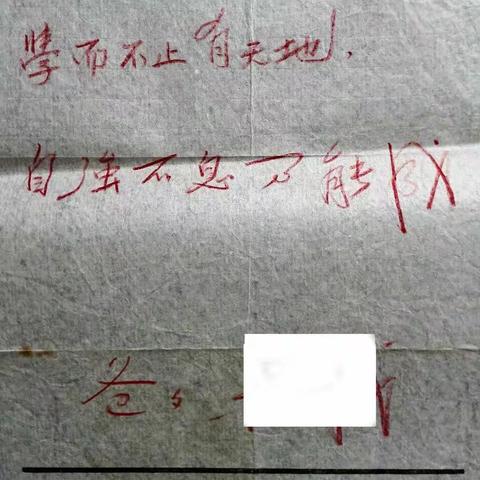 學而不止有天地,
自強不息方能成
爸: